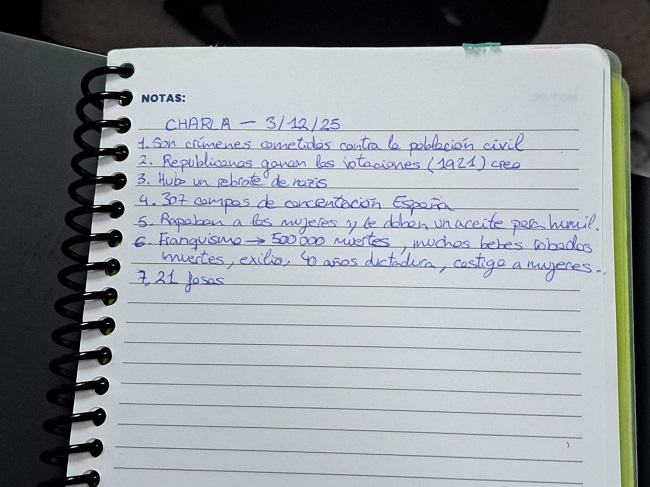 NOTAS:
CHARLA – 3/12/25
1. Son crímenes cometidos contra la población civil
2. Republicanos ganan las votaciones (1921) creo
3. Hubo un rebrote de nazis
4. 307 campos de concentación España
5. Rapaban a las mujeres y le daban un aceite para humil.
6. Franquismo → 500 000 muertes, muchos bebes robados
muertes, exilio, 40 años dictadura, castigo a mujeres...
7. 21 fosas